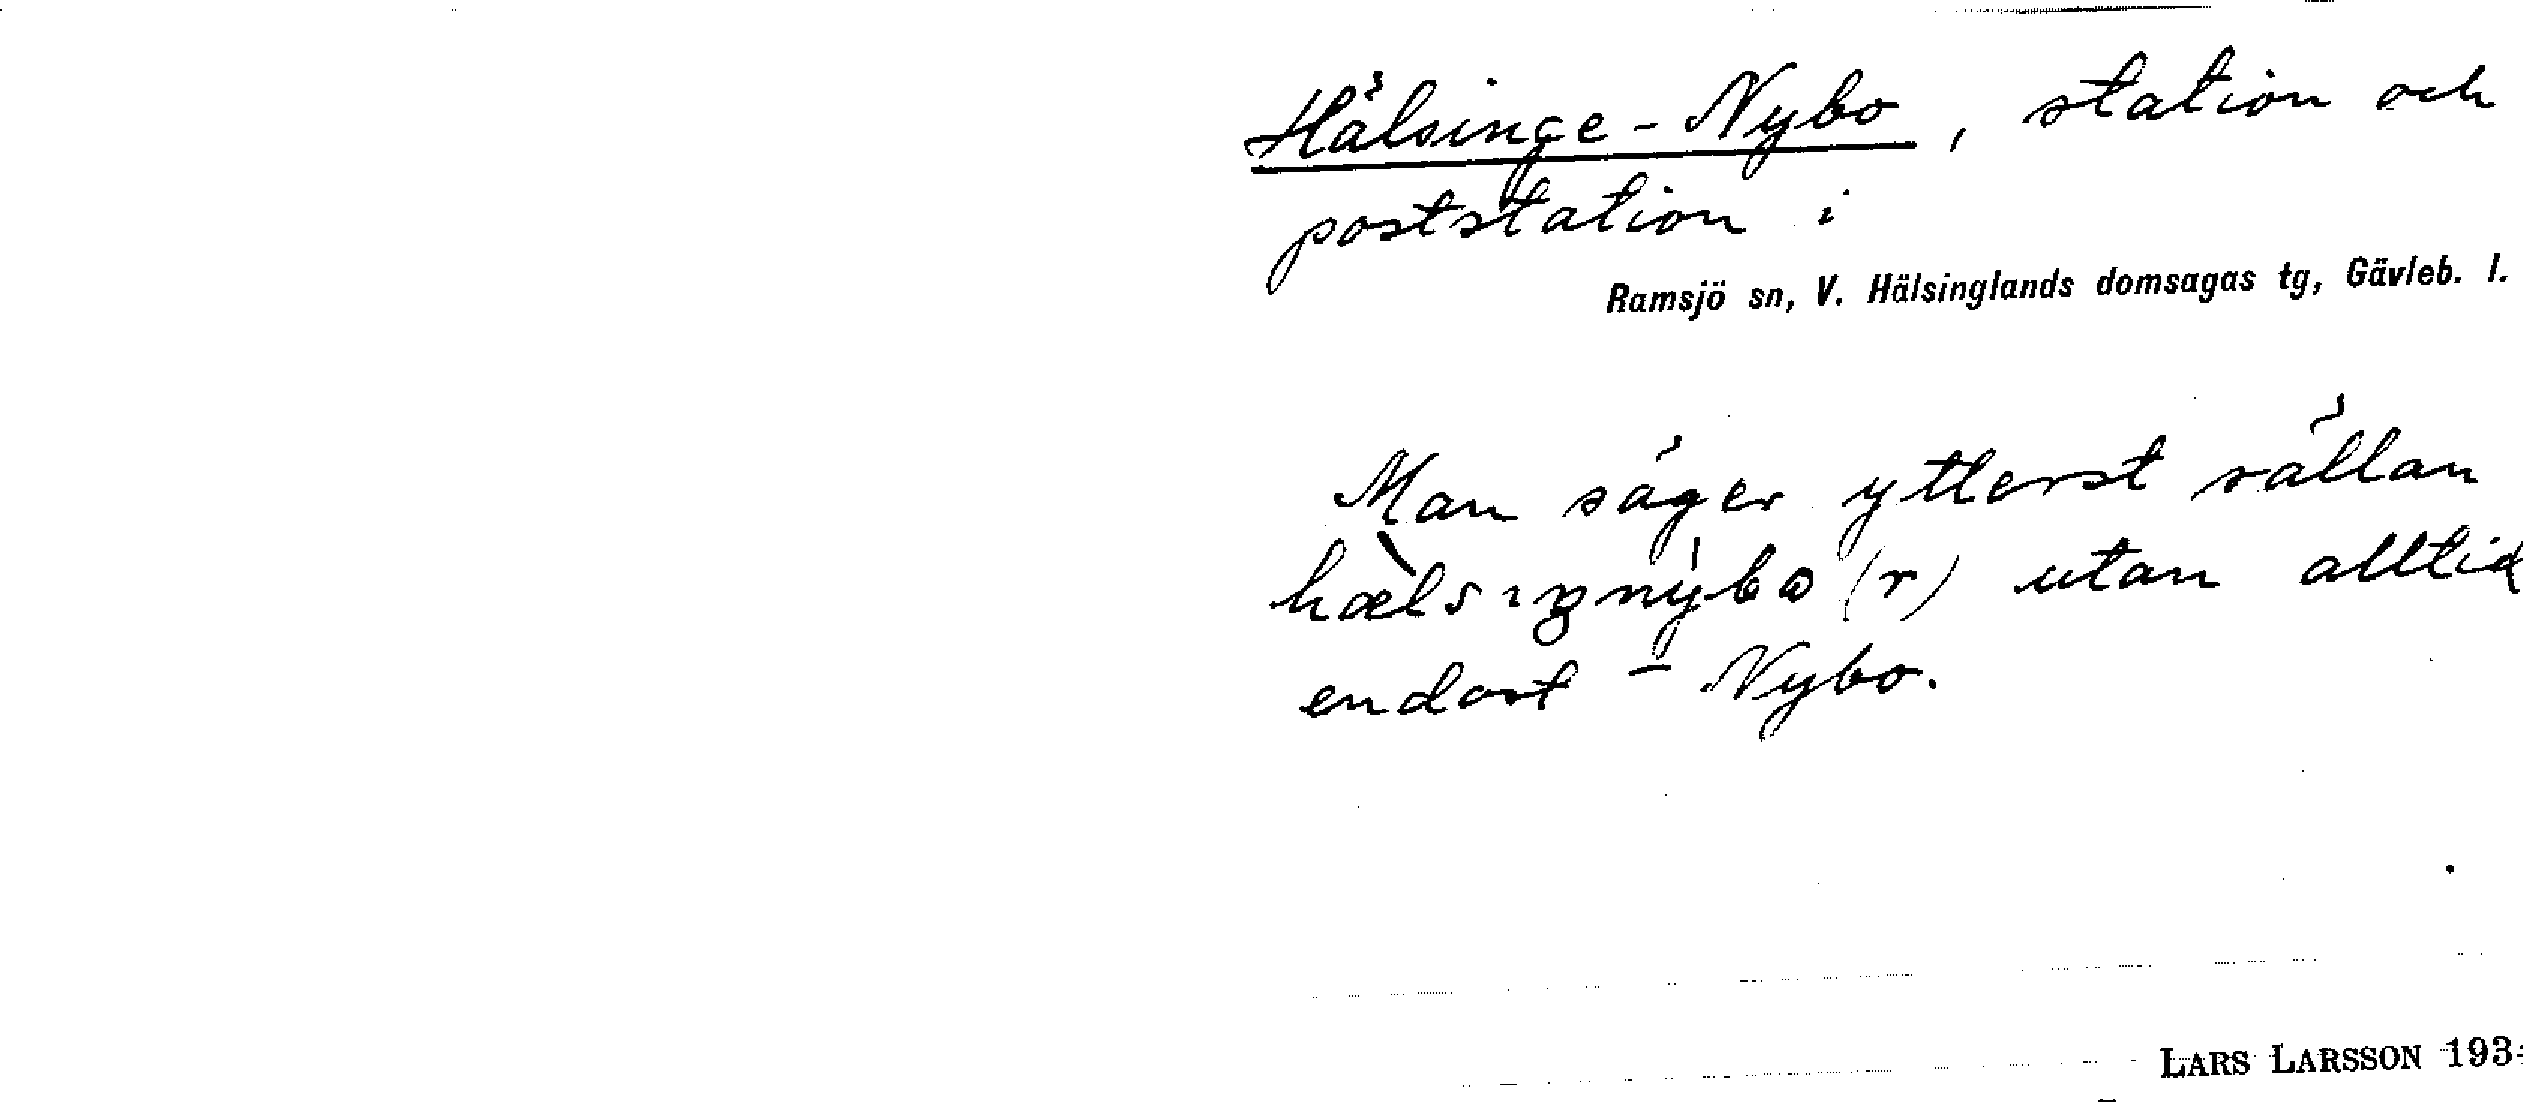 Hälsinge-Nybo, station och
poststation i
Ramsjö sn, V. Hälsinglands domsagas tg, Gävleb. l.
Man säger ytterst sällan
(r) utan alltid
endast - Nybo.
LARS LARSSON 193